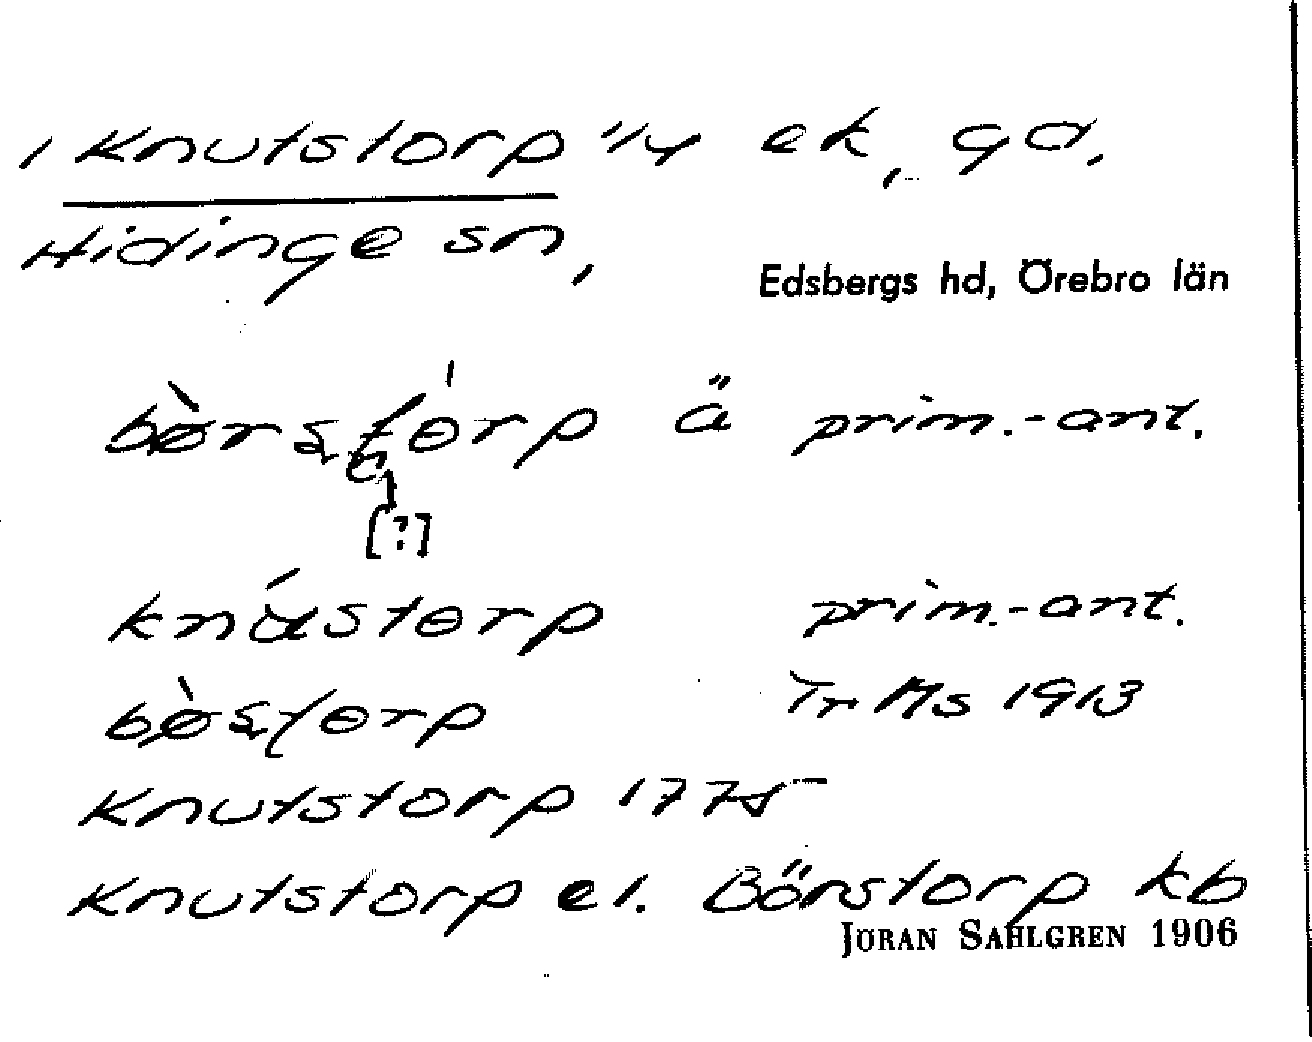 1 Knutstorp 1/4 ek, gd,
Hidinge sn,
Edsbergs hd, Örebro län
bø̀rstɵrp ä prim.-ant.
[?]
knústɵrp prim.-ant.
bø̀stɵrp Tr Ms 1913
Knutstorp 1775
Knutstorp el. Börstorp kb
JÖRAN SAHLGREN 1906